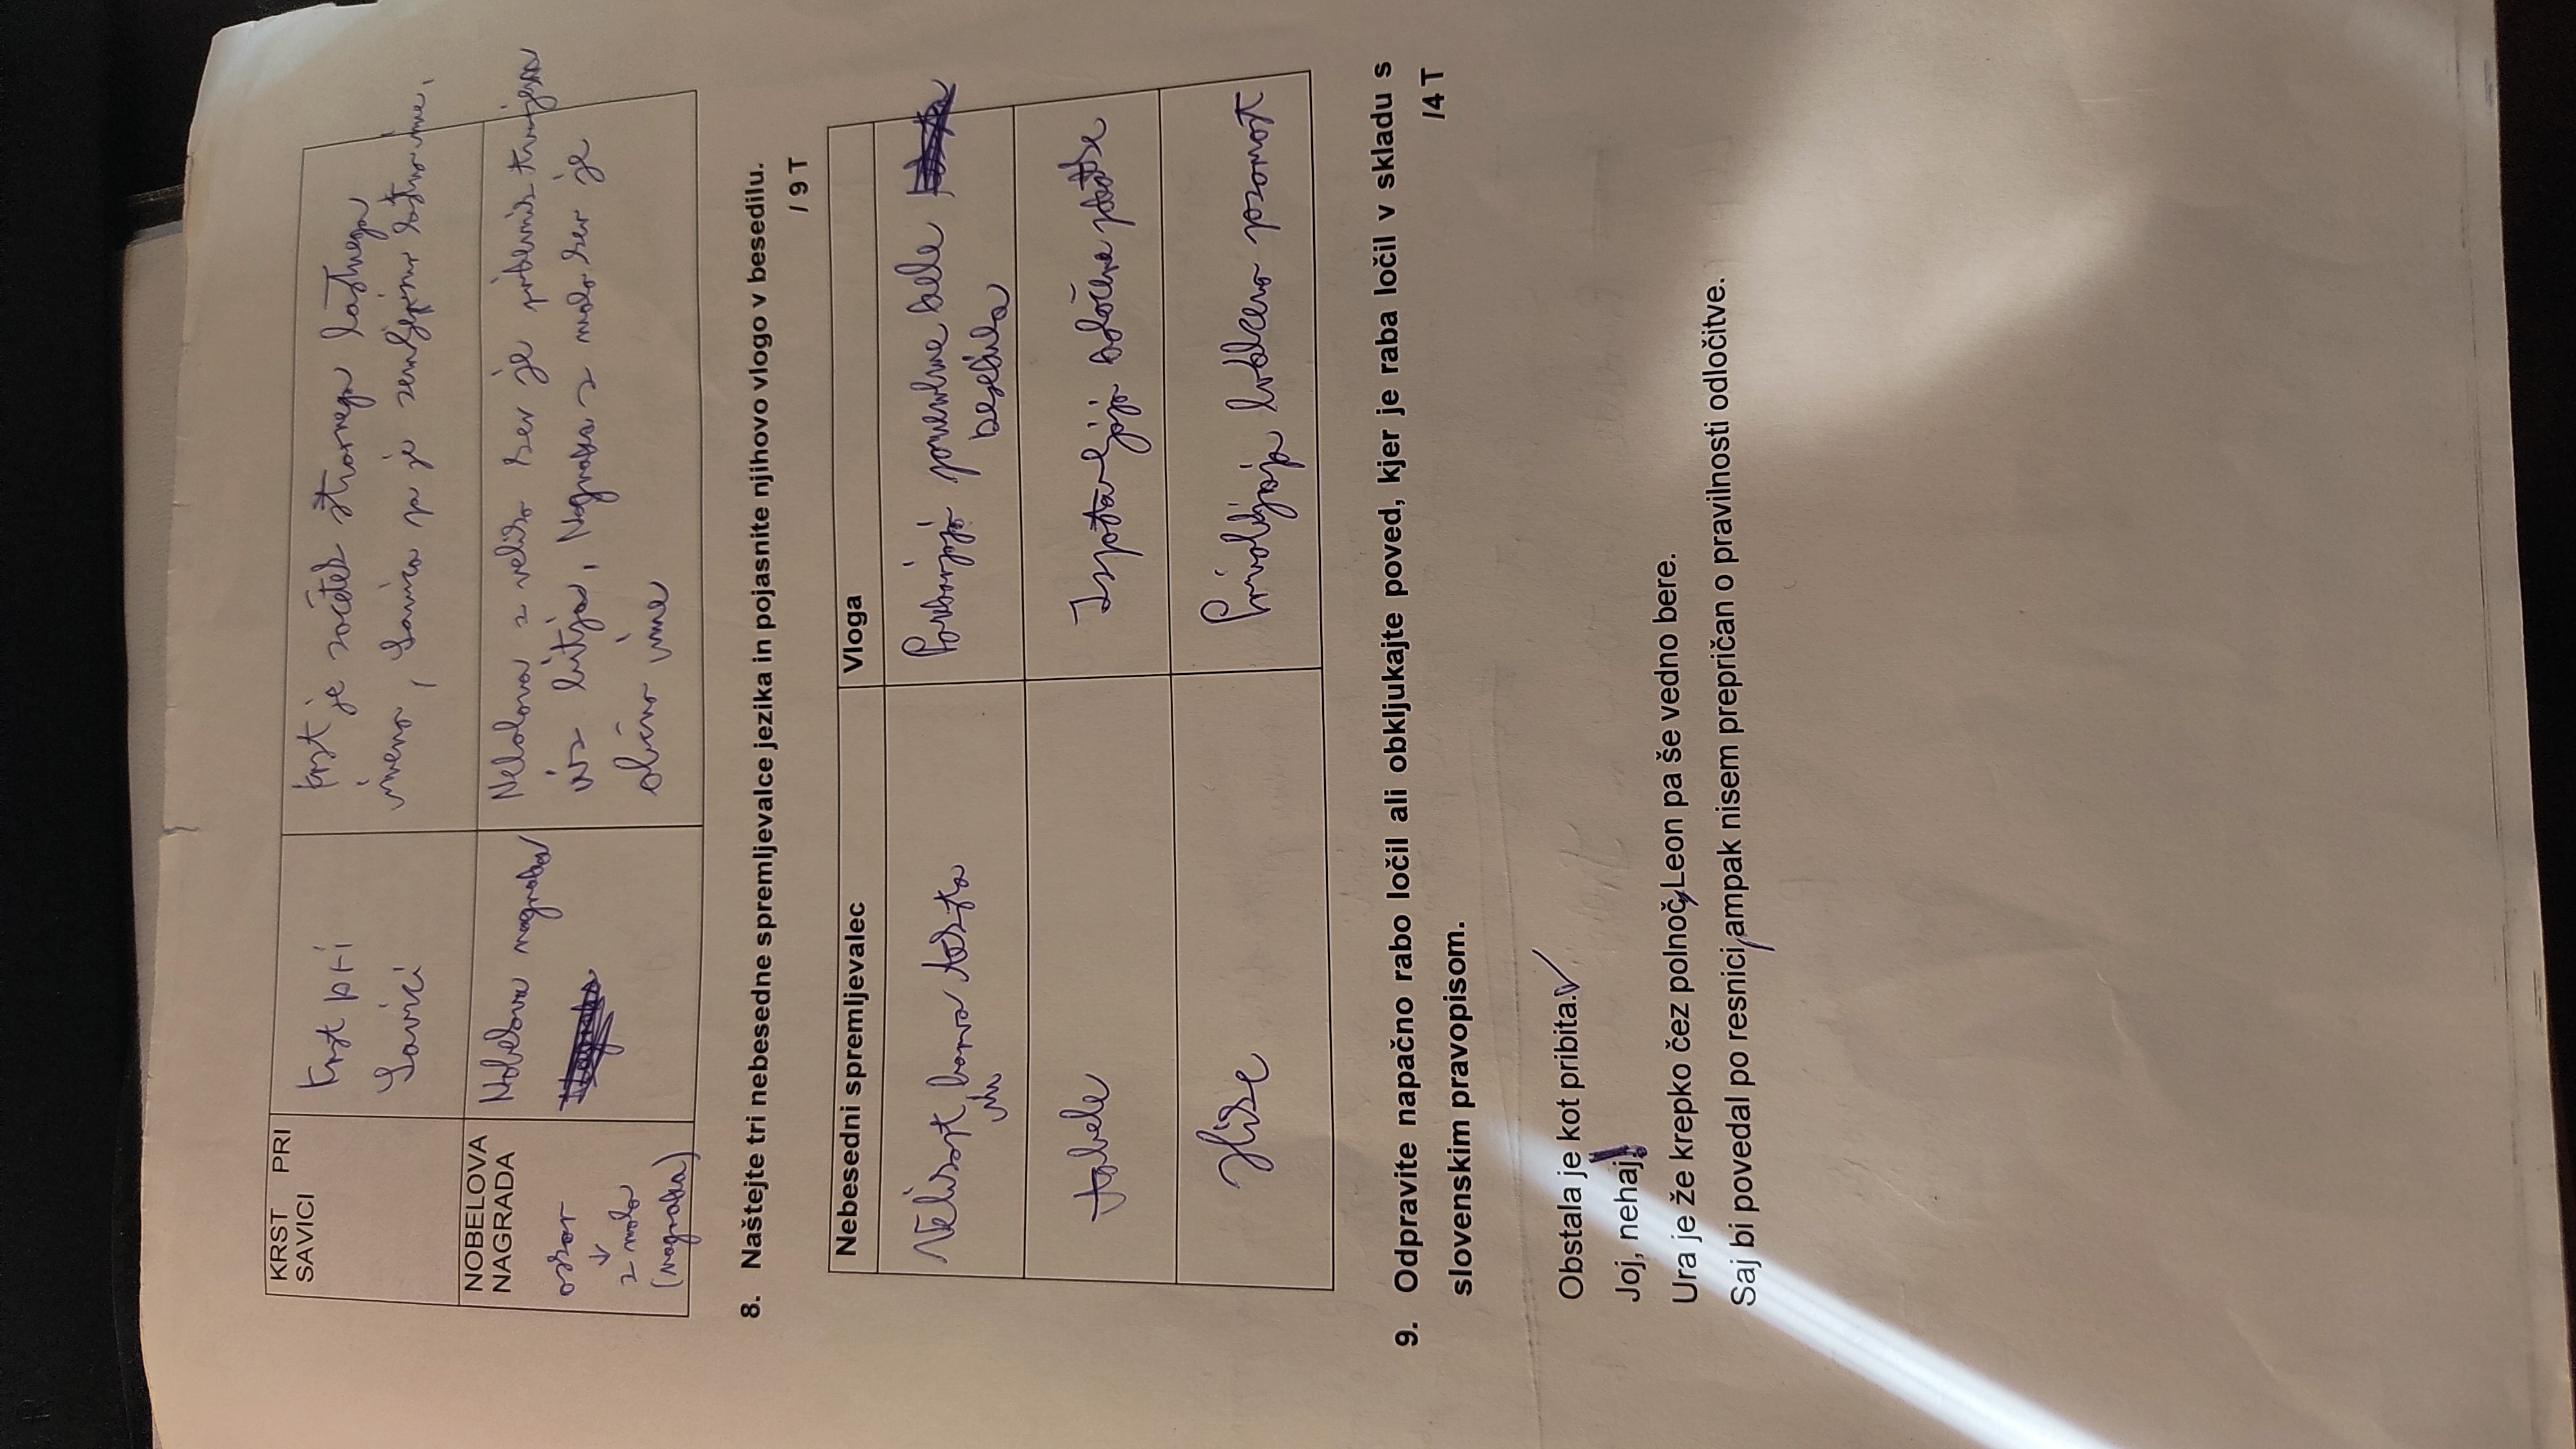 KRST PRI
SAVICI
Krst pri
Savici
Krst je začetek stvarnega lastnega
imena, Savica pa je zemljepisno lastno ime.
NOBELOVA
NAGRADA
oskar
↓
z malo
(nagrada)
Nobelova nagrada
z veliko ker je pridevnik
iz bitja, Nagrada z malo ker je
občno ime
8. Naštejte tri nebesedne spremljevalce jezika in pojasnite njihovo vlogo v besedilu.
/ 9 T
Nebesedni spremljevalec
Vloga
Velikost in barva teksta
Poudarjajo pomembne dele
besedila
tabele
Izpostavljajo določene podatke
slike
Privabljajo bralčevo pozornost
9. Odpravite napačno rabo ločil ali obkljukajte poved, kjer je raba ločil v skladu s
slovenskim pravopisom.
/4 T
Obstala je kot pribita. ✓
Joj, nehaj!
Ura je že krepko čez polnoč, Leon pa še vedno bere.
Saj bi povedal po resnici, ampak nisem prepričan o pravilnosti odločitve.